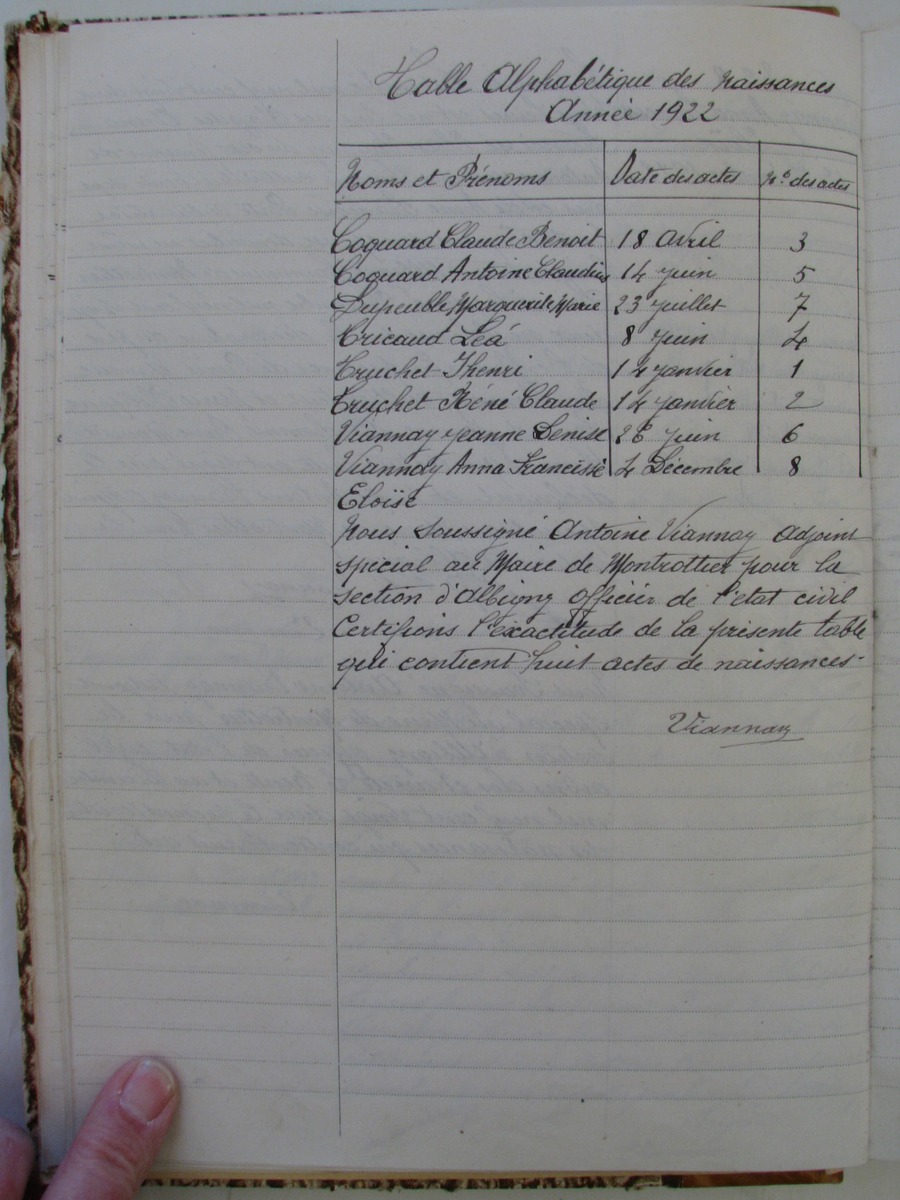 Table Alphabétique des Naissances
Année 1922
Noms et Prénoms Date des actes Nos des actes
Coquard Claude Benoit 18 Avril 3
Coquard Antoine Claudius 14 Juin 5
Dupeuble Marguerite Marie 23 Juillet 7
Tricaud Léa 8 Juin 4
Truchet Jhenri 14 Janvier 1
Truchet Réné Claude 14 Janvier 2
Viannay Jeanne Denise 26 Juin 6
Viannay Anna Francisse 4 Décembre 8
Eloïse
Nous soussigné Antoine Viannay adjoint
spécial au Maire de Montrottier pour la
section d'Albigny officier de l'état civil
Certifions l'exactitude de la présente table
qui contient huit actes de naissances-
Viannay